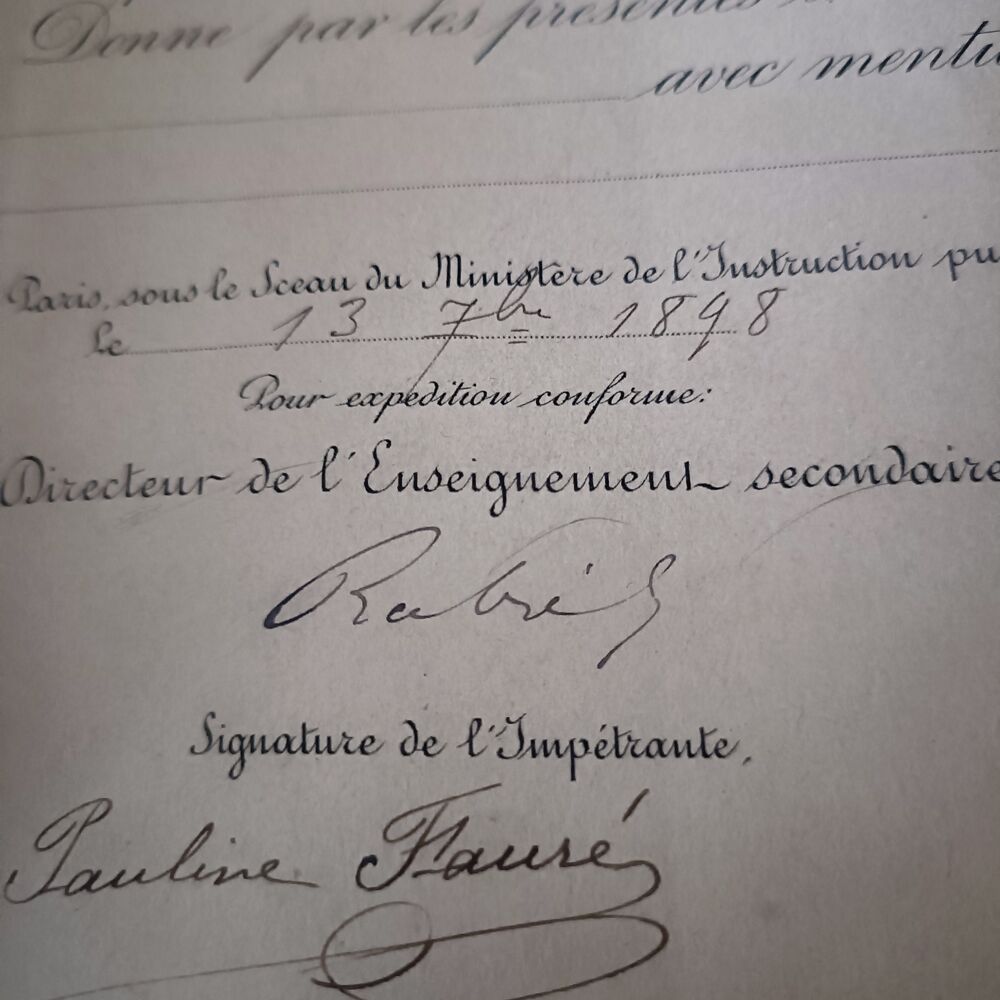 Donne par les présentes
avec menti
Paris, sous le Sceau du Ministère de l'Instruction pu
Le 13 7bre 1898
Pour expédition conforme:
Directeur de l'Enseignement secondaire
Rabier
Signature de l'Impétrante,
Pauline Fauré